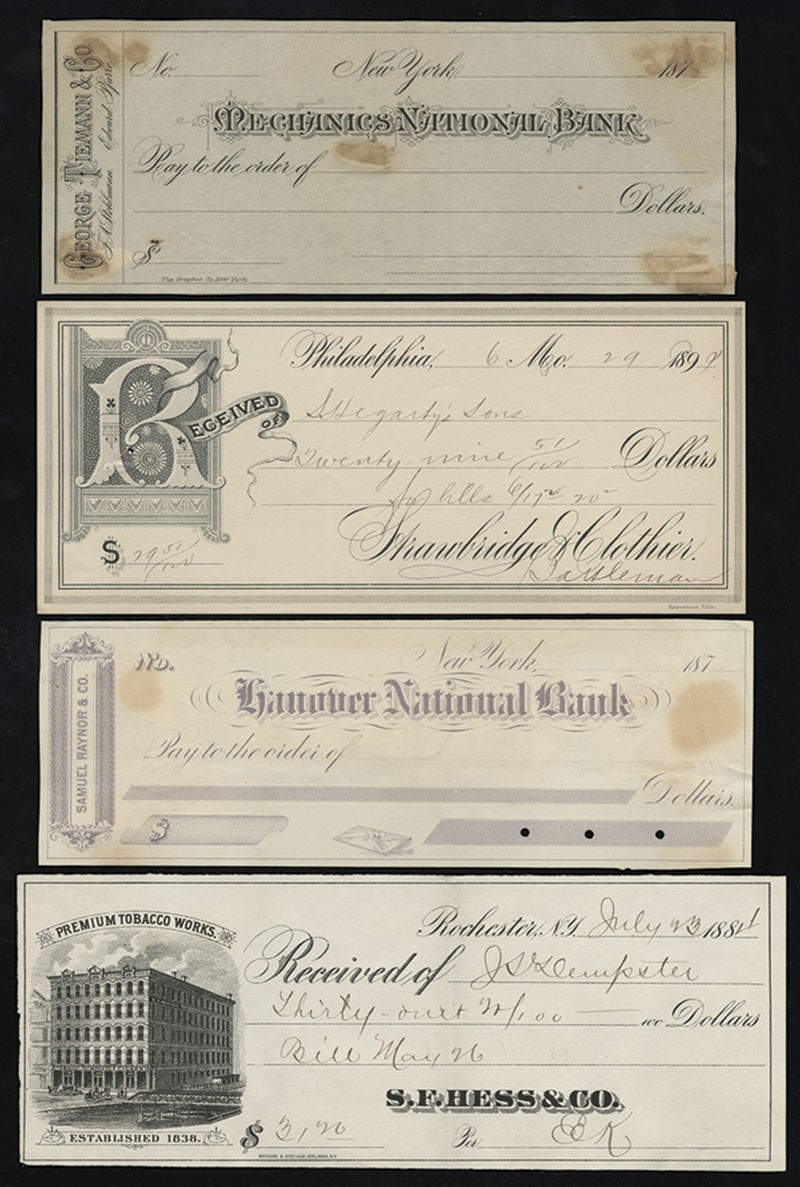 GEORGE TIEMANN & CO.
F. A. Stohlmann. Edward Pfarre.
No. New York, 187
MECHANICS NATIONAL BANK
Pay to the order of
Dollars.
$
The Graphic Co. New York.
RECEIVED OF
Philadelphia, 6 Mo. 29 1897
S Hegarty's Sons
Twenty nine 51/100 Dollars
bills 6/17
$ 29 51/100
Strawbridge & Clothier.
SAMUEL RAYNOR & CO.
No. New York, 187
Hanover National Bank
Pay to the order of
Dollars.
$
PREMIUM TOBACCO WORKS.
ESTABLISHED 1838.
Rochester, N.Y. July 23 1881
Received of J S Dempster
Thirty-one & 20/100 — 100 Dollars
Bill May 26
S. F. HESS & CO.
$ 31,20 Per E K